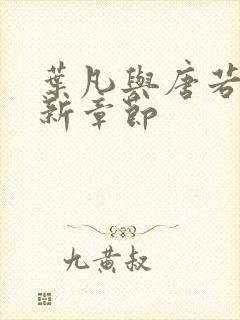 葉凡與唐若
新章節
九黃叔